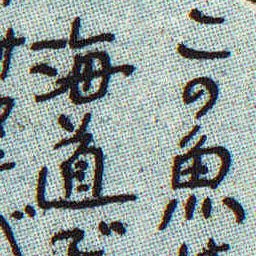 この魚は
海道で